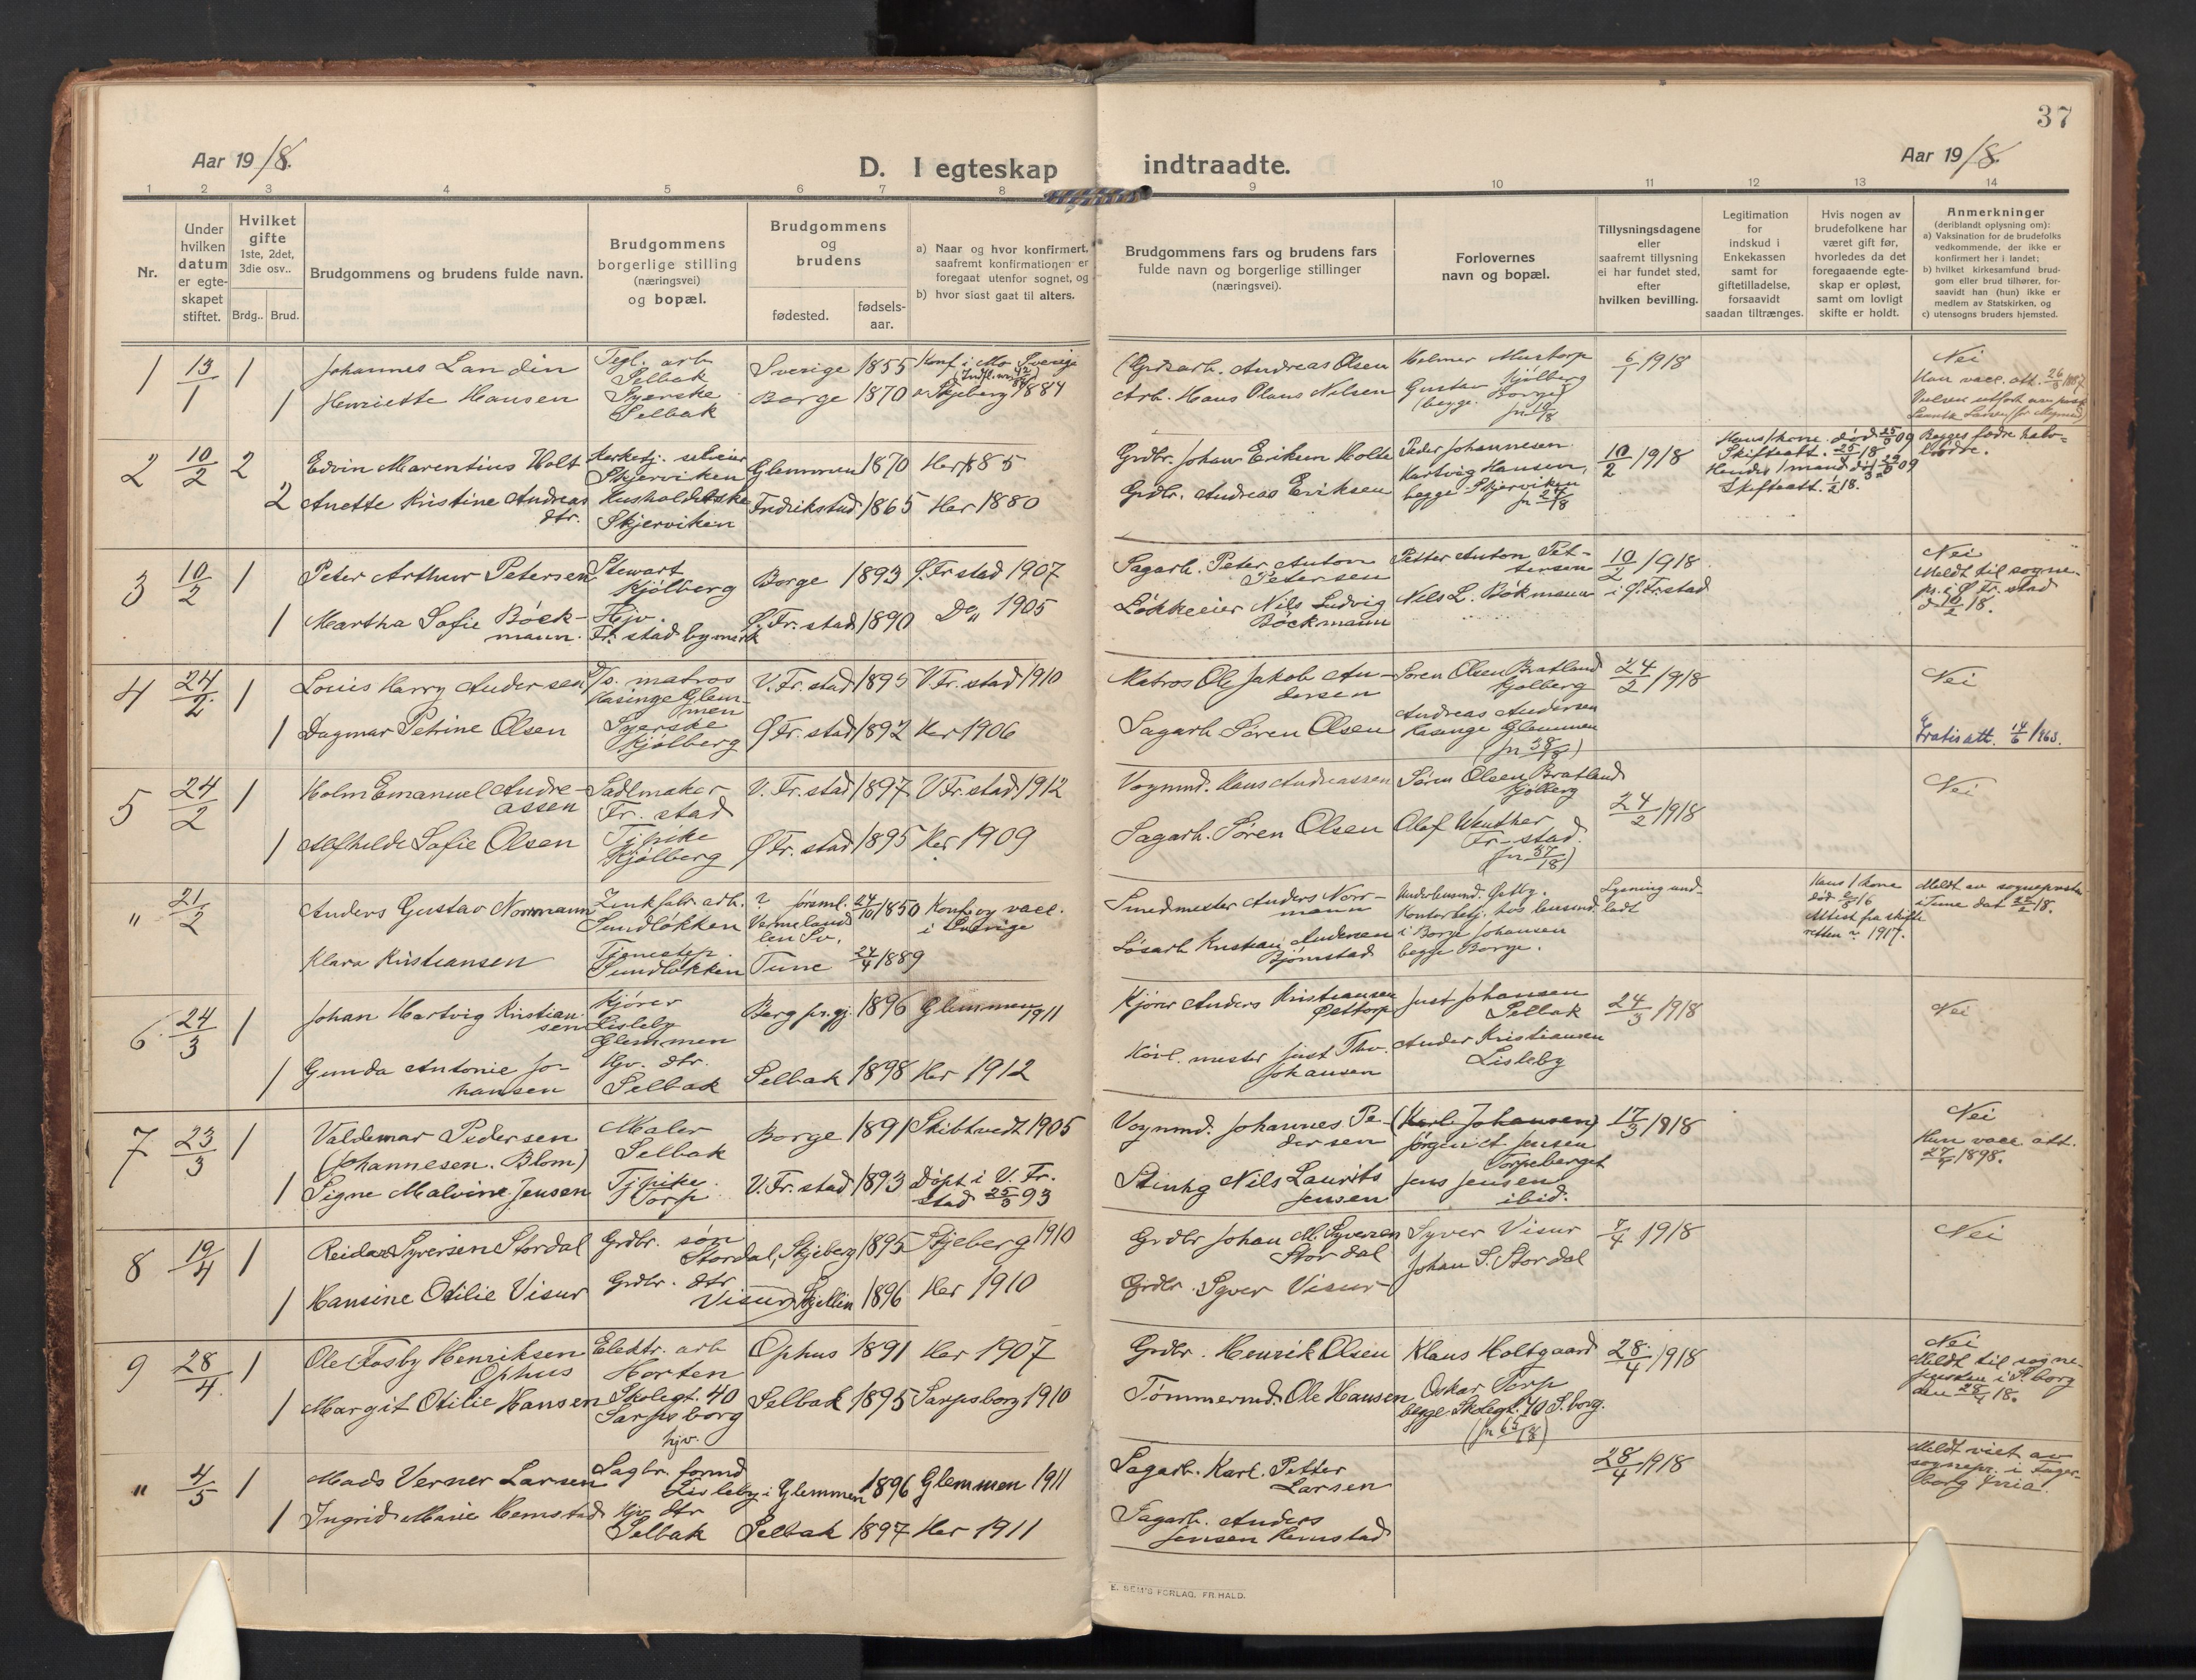 37
Aar 19 18.
D. I egteskap indtraadte.
Aar 19 18.
1 2 3 4 5 6 7 8 9 10 11 12 13 14
Nr.
Under
hvilken
datum
er egte-
skapet
stiftet.
Hvilket
gifte
1ste, 2det,
3die osv..
Brdg.. Brud.
Brudgommens og brudens fulde navn.
Brudgommens
borgerlige stilling
(næringsvei)
og bopæl.
Brudgommens
og
brudens
fødested.
fødsels-
aar.
a) Naar og hvor konfirmert,
saafremt konfirmationen er
foregaat utenfor sognet, og
b) hvor sidst gaat til alters.
Brudgommens fars og brudens fars
fulde navn og borgerlige stillinger
(næringsvei).
Forlovernes
navn og bopæl.
Tillysningsdagene
eller
saafremt tillysning
ei har fundet sted,
efter
hvilken bevilling.
Legitimation
for
indskud i
Enkekassen
samt for
giftetilladelse,
forsaavidt
saadan tiltrænges.
Hvis nogen av
brudefolkene har
været gift før,
hvorledes da det
foregaaende egte-
skap er opløst,
samt om lovligt
skifte er holdt.
Anmerkninger
(deriblandt oplysning om):
a) Vaksination for de brudefolks
vedkommende, der ikke er
konfirmert her i landet;
b) hvilket kirkesamfund brud-
gom eller brud tilhører, for-
saavidt han (hun) ikke er
medlem av Statskirken, og
c) utensogns bruders hjemsted.
1 13/1 1 Johannes Landin
Tegl. arb
Selbak
Sverige 1855 Konf i Mo Sverige
Grdsarb. Andreas Olsen
6/1 1918
Nei
1 Henriette Hansen
Syerske
Selbak
Borge 1870 Skjeberg 1884
Arb. Hans Olaus Nilsen
Gustav Kjølberg
(begge Borge)
2 10/2 2 Edvin Marentius Holt
Skjerviken
Glemmen 1870 Her 1885
Grdbr. Johan Eriksen Holt
Peder Johannesen
Hartvig Hansen,
begge Skjerviken
10/2 1918
2 Anette Kristine Andreas
dtr.
Skjerviken
Fredrikstad 1865 Her 1880
Grdbr. Andreas Eriksen
3 10/2 1 Peter Arthur Petersen
Stewart
Kjølberg
Borge 1893 Ø. Fr stad 1907
Sagarb. Peter Anton
Petersen
Petter Anton Pet-
tersen
10/2 1918
i Ø. Fr.stad
Nei
Meldt til sogne-
pr. i Ø Fr. stad
1 Martha Sofie Böck-
mann.
Hjv.
Fr. stad bymark
Ø. Fr. stad 1890 Do 1905
Løkkeeier Nils Ludvig
Böckmann
Nils L. Bökmann
4 24/2 1 Louis Harry Andersen
D/s. matros
Glem-
men
V. Fr. stad 1895 V. Fr. stad 1910
Matros Ole Jakob An-
dersen
Søren Olsen Bratland
Kjølberg
24/2 1918
Nei
1 Dagmar Petrine Olsen
Syerske
Kjølberg
Ø Fr. stad 1892 Her 1906
Sagarb. Søren Olsen
Andreas Andersen
Glemmen
Gratisatt. 14/6 1963.
5 24/2 1 Holm Emanuel Andre-
assen
Sadlmaker
Fr. stad
V. Fr. stad 1897 V Fr. stad 1912
Vognmd. Hans Andreassen
Søren Olsen Bratland
Kjølberg
24/2 1918
Nei
1 Alfhilde Sofie Olsen
Tjpike
Kjølberg
Ø Fr. stad 1895 Her 1909
Sagarb. Søren Olsen
Olaf Wenther
Fr. stad.
" 21/2 Anders Gustav Norrmann
Zinkfabr. arb.
Sundløkken
24/10 1850 Konf og vacc.
i Sverige
Smedmester Anders Norr-
mann
Lysning und-
ladt
Hans 1 kone
Meldt av sogneprsten
i Tune dat 22/2 18.
Klara Kristiansen
Tjenestep.
Sundløkken
Tune 24/4 1889
Løsarb Kristian Andersen
Bjørnstad
i Borge Johansen
begge Borge.
6 24/3 1 Johan Hartvig Kristian-
sen
Kjører
Lisleby
Glemmen
Berg pr.gj. 1896 Glemmen 1911
Kjører Anders Kristiansen
Just Johansen
Selbak
24/3 1918
Nei
1 Gunda Antonie Jo-
hansen
Hjv. dtr.
Selbak
Selbak 1898 Her 1912
Høvl. mester Just Thv.
Johansen
Anders Kristiansen
Lisleby
7 23/3 1 Valdemar Pedersen
(Johannesen. Blom)
Maler
Selbak
Borge 1891 Skibtvedt 1905
Vognmd. Johannes Pe-
dersen
(Karl Johansen)
Torpeberget
17/3 1918
Nei
Hun vacc. att.
27/7 1898.
1 Signe Malvine Jensen
Tjpike.
Torp
V. Fr. stad 1893 Døpt i V. Fr.
stad 25/5 93
Nils Laurits
Jensen
Jens Jensen
ibid.
8 19/4 1 Reidar Syversen Stordal
Grdbr. søn
Stordal, Skjeberg 1895 Skjeberg 1910
Grdbr Johan M. Syversen
Stordal
Syver Visur
Johan S. Stordal
7/4 1918
Nei
1 Hansine Otilie Visur
Grdbr. dtr
Visur Skjellin 1896 Her 1910
Grdbr. Syver Visur
9 28/4 1 Ole Fosby Henriksen
Ophus
Elektr. arb
Horten
Ophus 1891 Her 1907
Grdbr. Henrik Olsen
Klaus Holtgaard
28/4 1918
Nei
Meldt til sogne-
presten i S.borg
den 28/4 18.
1 Margit Otilie Hansen
Skolegt. 40
Sarpsborg
hjv.
Selbak 1895 Sarpsborg 1910
Tømmermd. Ole Hansen
Oskar Torp
begge Skolegt. 40 S.borg.
" 4/5 1 Mads Verner Larsen
Sagbr. formd
Lisleby i Glemmen 1896 Glemmen 1911
Sagarb. Karl Petter
Larsen
28/4 1918
Meldt viet av
sognepr. i Fager-
borg Kria.
1 Ingrid Marie Hemstad
Hjv. dtr
Selbak
Selbak 1897 Her 1911
Fagarb. Anders
Jensen Hemstad
E. SEM'S FORLAG, FR.HALD.